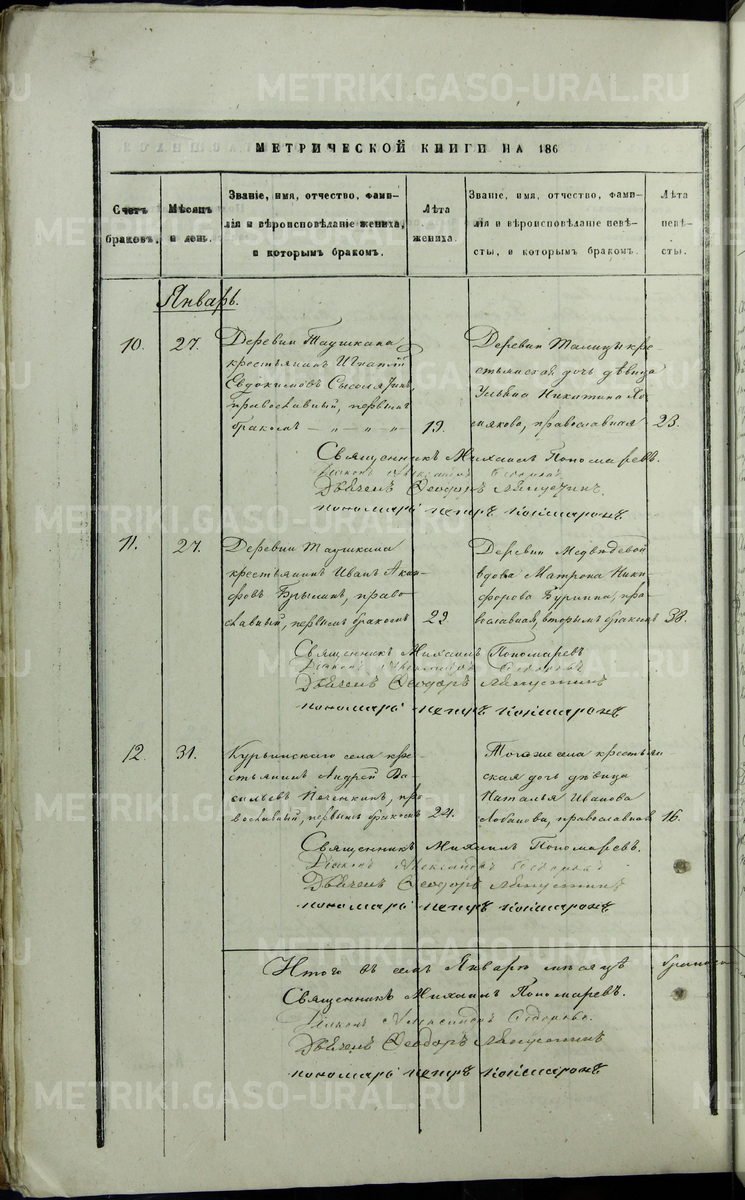 METRIKI.GASO-URAL.RU
МЕТРИЧЕСКОЙ КНИГИ НА 186
Счетъ браковъ.
Мѣсяцъ и день.
Званіе, имя, отчество, фами-
лія и вѣроисповѣданіе жениха,
и которымъ бракомъ.
Лѣта жениха.
Званіе, имя, отчество, фами-
лія и вѣроисповѣданіе невѣ-
сты, и которымъ бракомъ.
Лѣта невѣ-
сты.
Январь.
10. 27.
Деревни Таушкана
крестьянинъ Игнатій
Евдокимовъ
православный, первымъ
бракомъ 19.
Деревни Талицы кре-
стьянская дочь дѣвица
Никитина
православная 23.
Священникъ Михаилъ Пономаревъ.
Діаконъ
Дьячекъ Ѳеодоръ
пономарь петръ
11. 27.
Деревни Таушкана
крестьянинъ Иванъ Акин-
фовъ право-
славный, первымъ бракомъ 29
Деревни Медвѣдевой
вдова Матрона Ники-
форова Бурнина, пра-
вославная, вторымъ бракомъ 38.
Священникъ Михаилъ Пономаревъ
Діаконъ
Дьячекъ Ѳеодоръ
пономарь петръ
12. 31.
Курьинскаго села кре-
стьянинъ Андрей Ва-
сильевъ Печенкинъ, пра-
вославный, первымъ бракомъ 24.
Тогоже села крестьян-
ская дочь дѣвица
Наталья Иванова
Лобанова, православная 16.
Священникъ Михаилъ Пономаревъ.
Діаконъ
Дьячекъ Ѳеодоръ
пономарь петръ
Итого въ семъ Январѣ мѣсяцѣ
Священникъ Михаилъ Пономаревъ.
Діаконъ Александръ
Дьячекъ Ѳеодоръ
пономарь петръ